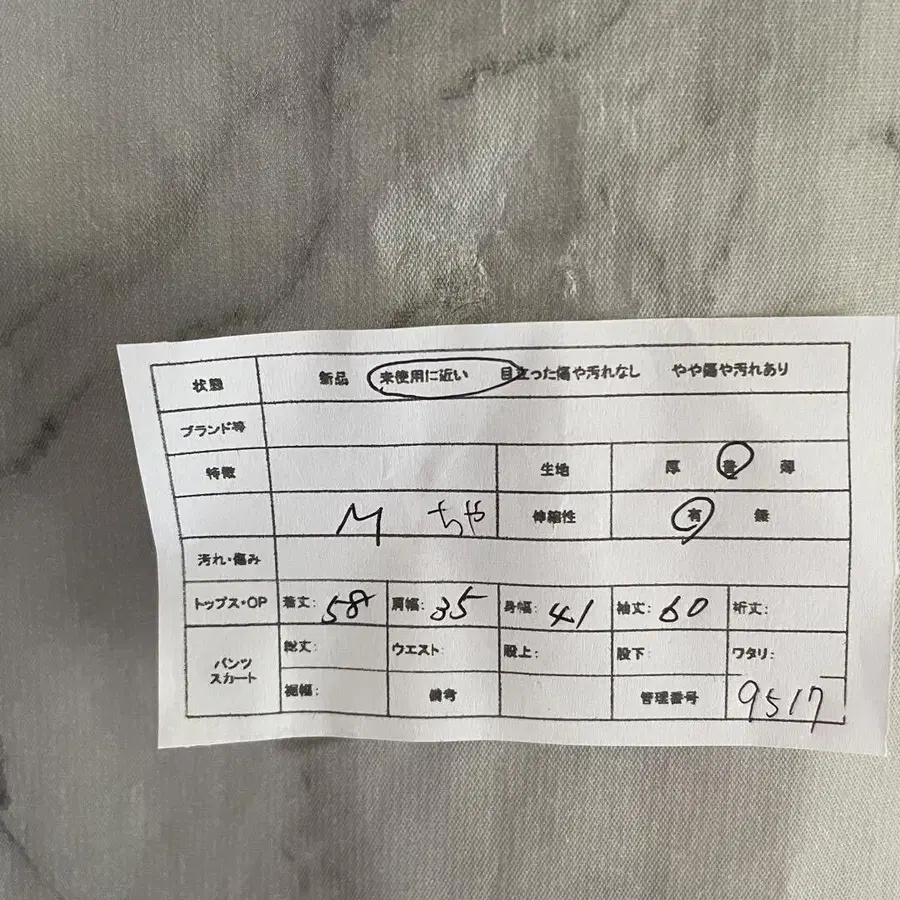 状態 新品 未使用に近い 目立った傷や汚れなし やや傷や汚れあり
ブランド等
特徴 生地 厚 普 薄
M ちゃ 伸縮性 有 無
汚れ・傷み
トップス・OP 着丈: 58 肩幅: 35 身幅: 41 袖丈: 60 裄丈:
パンツ スカート 総丈: ウエスト: 股上: 股下: ワタリ:
裾幅: 備考 管理番号 9517